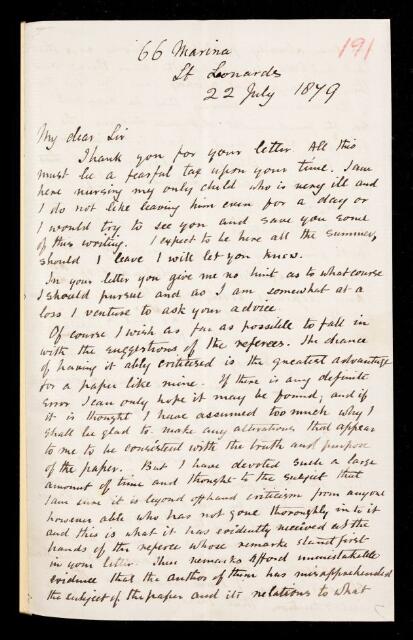 66 Marina
191
St Leonards
22 July 1879
My dear Sir
Thank you for your letter All this
must be a fearful tax upon your time. I am
here nursing my only child who is very ill and
I do not like leaving him even for a day or
I would try to see you and save you some
of this writing. I expect to be here all the summer,
should I leave I will let you know.
In your letter you give me no hint as to what course
I should pursue and as I am somewhat at a
loss I venture to ask your advice
Of course I wish as far as possible to fall in
with the suggestions of the referees. The chance
of having it ably criticised is the greatest advantage
for a paper like mine. If there is any definite
error I can only hope it may be found, and if
it is thought I have assumed too much why I
shall be glad to make any alterations that appear
to me to be consistent with the truth and purpose
of the paper. But I have devoted such a large
amount of time and thought to the subject that
I am sure it is beyond offhand criticism from anyone
however able who has not gone thoroughly in to it
and this is what it has evidently received at the
hands of the referee whose remarks stand first
in your letter. These remarks afford unmistakable
evidence that the author of them has misapprehended
the subject of the paper and its relations to what